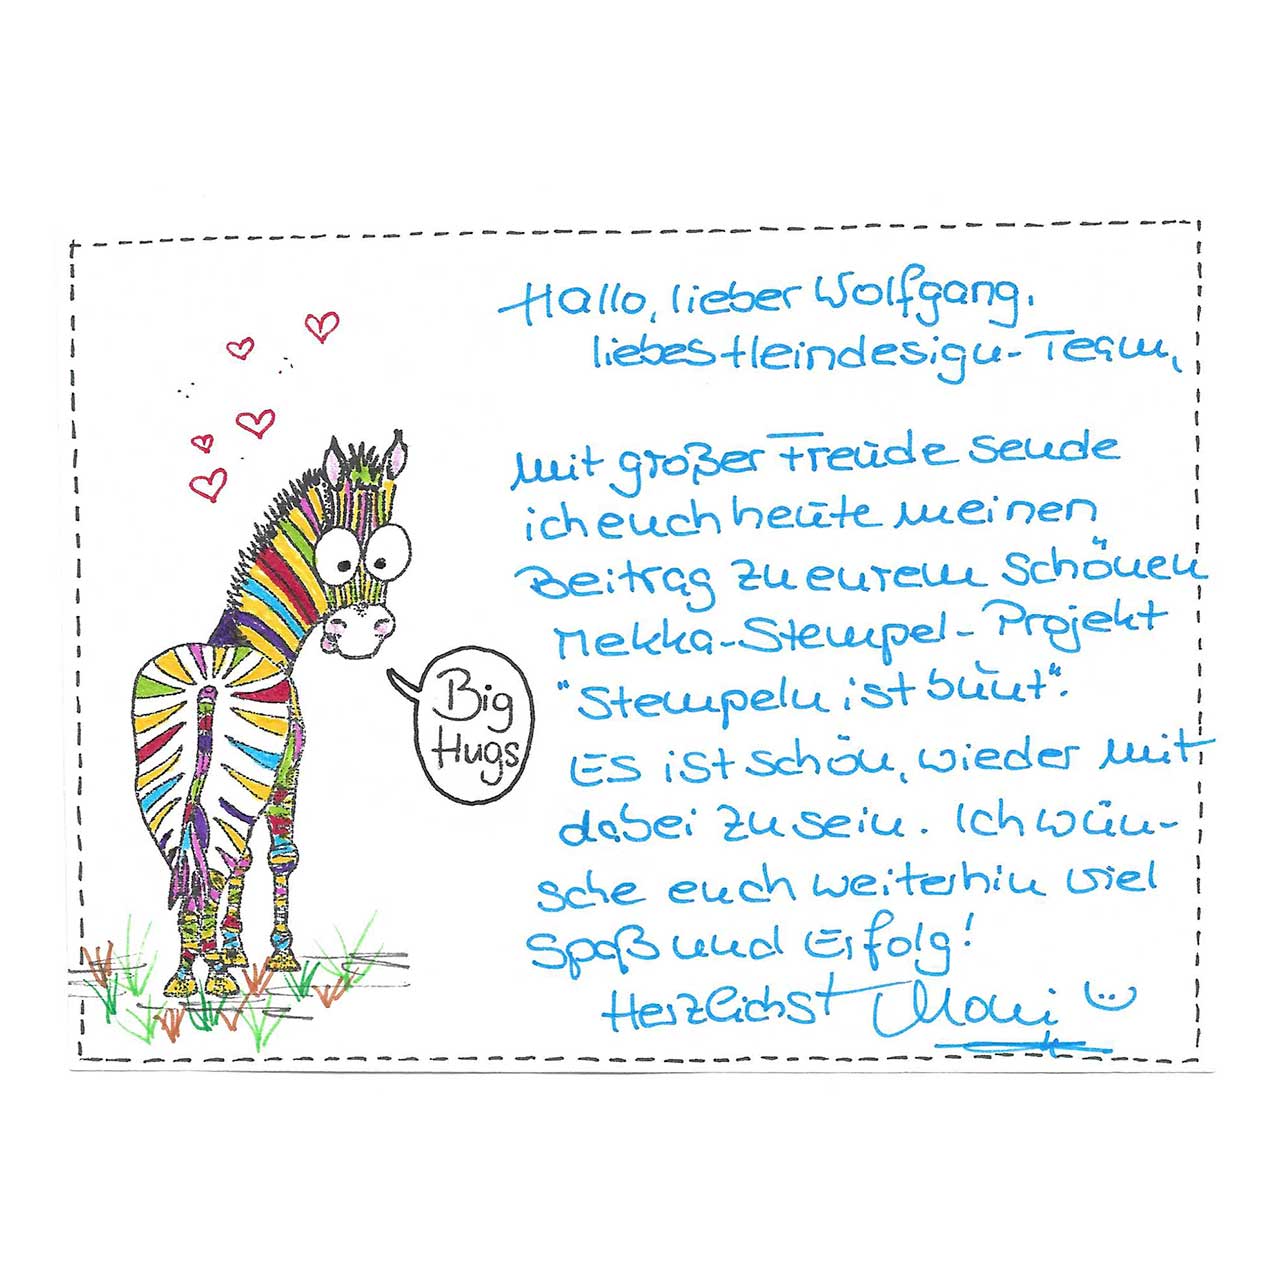 Hallo, lieber Wolfgang,
liebes Heindesign-Team,
mit großer Freude sende
ich euch heute meinen
Beitrag zu eurem schönen
Mekka-Stempel-Projekt
"Stempeln ist bunt".
Es ist schön, wieder mit
dabei zu sein. Ich wün-
sche euch weiterhin viel
Spaß und Erfolg!
Herzlichst Moni
Big
Hugs